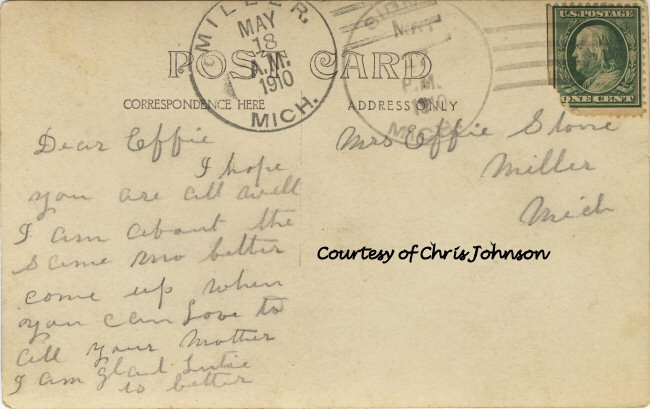 MILLER,
MAY
18
A.M.
1910
MICH.
MAY
P.M.
1910
MICH
U.S. POSTAGE
ONE CENT
POST CARD
CORRESPONDENCE HERE
ADDRESS ONLY
Dear Effie
I hope
you are all well
I am about the
same no better
come up when
you can Love to
all your Mother
I am glad
is better
Mrs Effie Stone
Miller
Mich
Courtesy of Chris Johnson